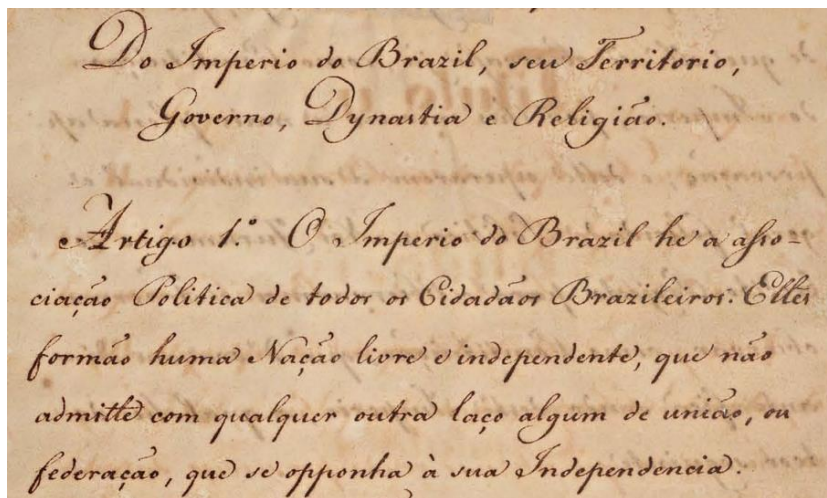 Do Imperio do Brazil, seu Territorio,
Governo, Dynastia e Religião.
Artigo 1.º O Imperio do Brazil he a asso-
ciação Politica de todos os Cidadãos Brazileiros. Elles
formão huma Nação livre e independente, que não
admitte com qualquer outra laço algum de união, ou
federação, que se opponha à sua Independencia.